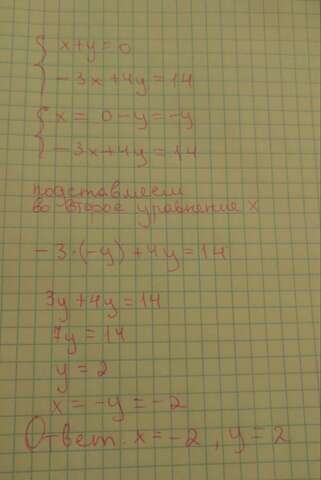 x+y=0
-3x+4y=14
x= 0-y=-y
-3x+4y=14
подставляем
во второе уравнение x
-3·(-y)+4y=14
3y+4y=14
7y=14
y=2
x=-y=-2
Ответ: x=-2, y=2